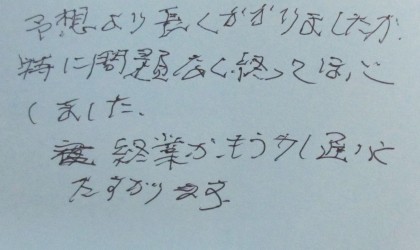 予想より長くかかりましたが
特に問題なく終ってほっと
しました。
終業が、もう少し遅いと
たすかります